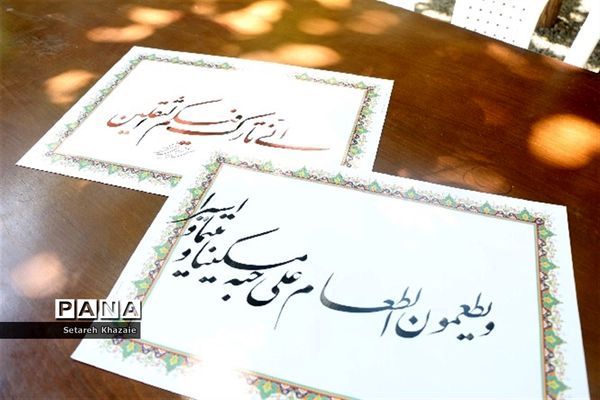 انی تارک فیکم الثقلین
و یطعمون الطعام علی حبه مسکینا و یتیما و اسیرا
PANA
Setareh Khazaie